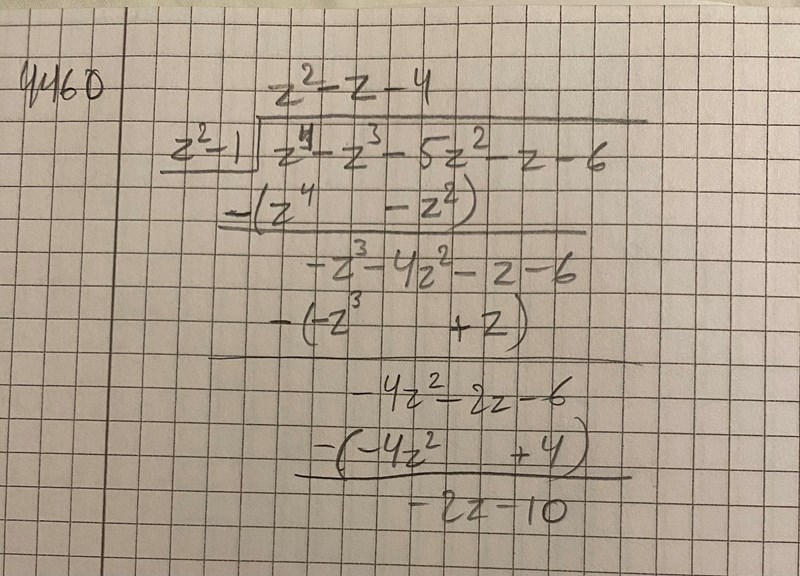 4460
z² - z - 4
z² - 1 z⁴ - z³ - 5z² - z - 6
-(z⁴ - z²)
-z³ - 4z² - z - 6
-(-z³ + z)
-4z² - 2z - 6
-(-4z² + 4)
-2z - 10